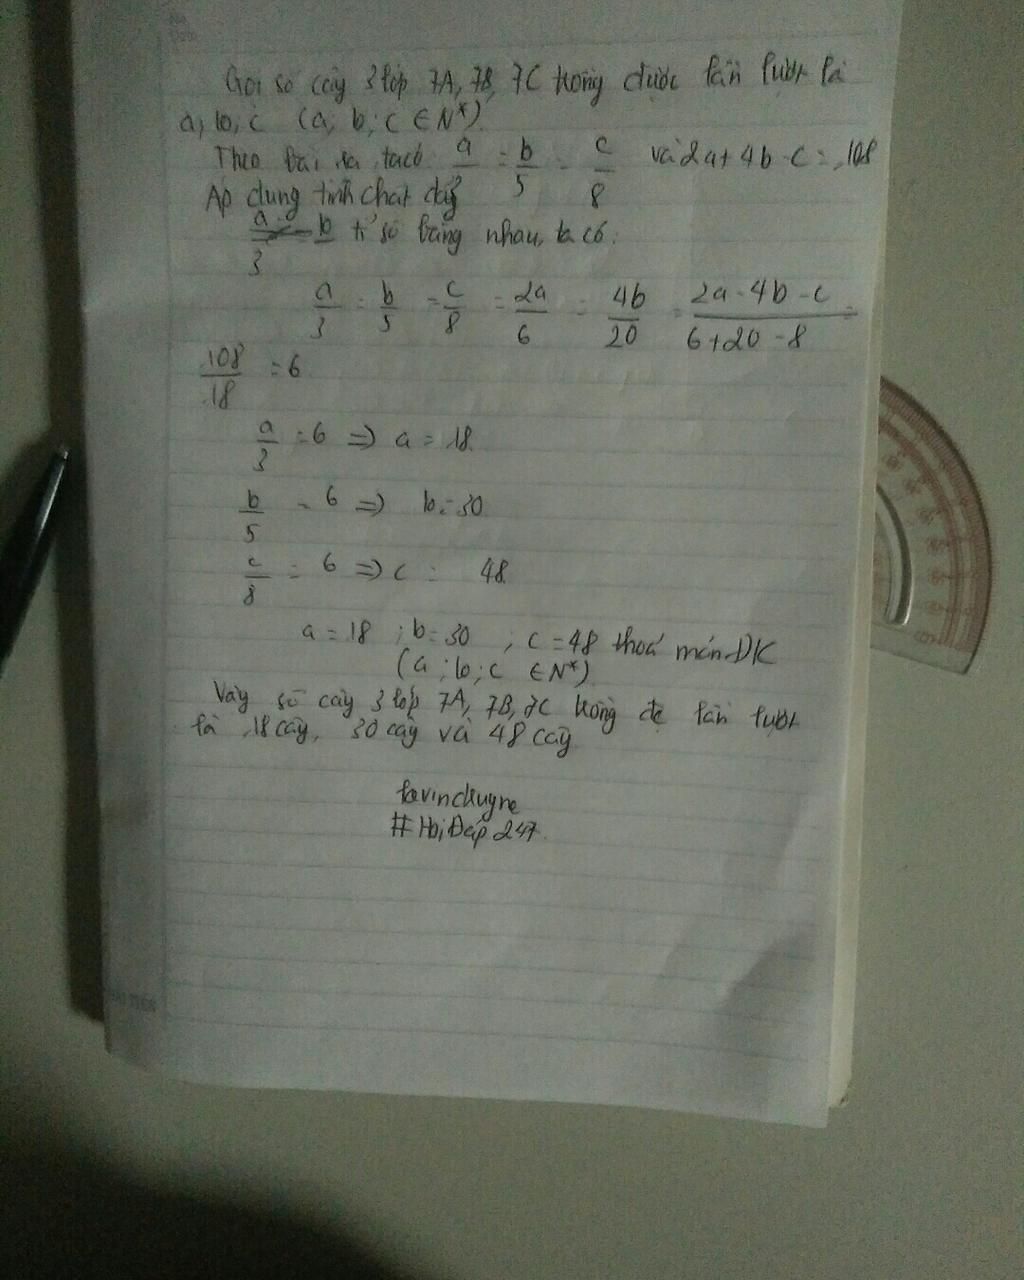 Gọi số cây 3 lớp 7A, 7B, 7C trồng được lần lượt là
a, b, c (a; b; c ∈ N*)
Theo bài ra ta có a/ = b/5 = c/8 và 2a + 4b - c = 108
Áp dụng tính chất dãy
a/3 = b tỉ số bằng nhau, ta có:
a/3 = b/5 = c/8 = 2a/6 = 4b/20 = 2a - 4b - c/6 + 20 - 8 =
108/18 = 6
a/3 = 6 => a = 18
b/5 = 6 => b = 30
c/8 = 6 => c = 48
a = 18 ; b = 30 ; c = 48 thoả mãn ĐK
(a ; b ; c ∈ N*)
Vậy số cây 3 lớp 7A, 7B, 7C trồng đc lần lượt
là 18 cây, 30 cây và 48 cây
#HoiDap247